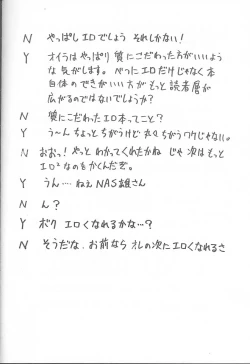 N やっぱしエロでしょう それしかない!
Y オイラはやっぱり質にこだわった方がいいよう
な気がします。べつにエロだけじゃなく本
自体のできがいい方がもっと読者層が
広がるのではないでしょうか?
N 質にこだわったエロ本ってこと?
Y う〜ん ちょっとちがうけど 丸々ちがうワケじゃない。
N おおっ!やっと わかってくれたかね じゃ 次はもっと
エロ²なのをかくんだぞ。
Y うん‥‥ねぇ NAS雄さん
N ん?
Y ボク エロくなれるかな…?
N そうだな、お前なら オレの次にエロくなれるさ